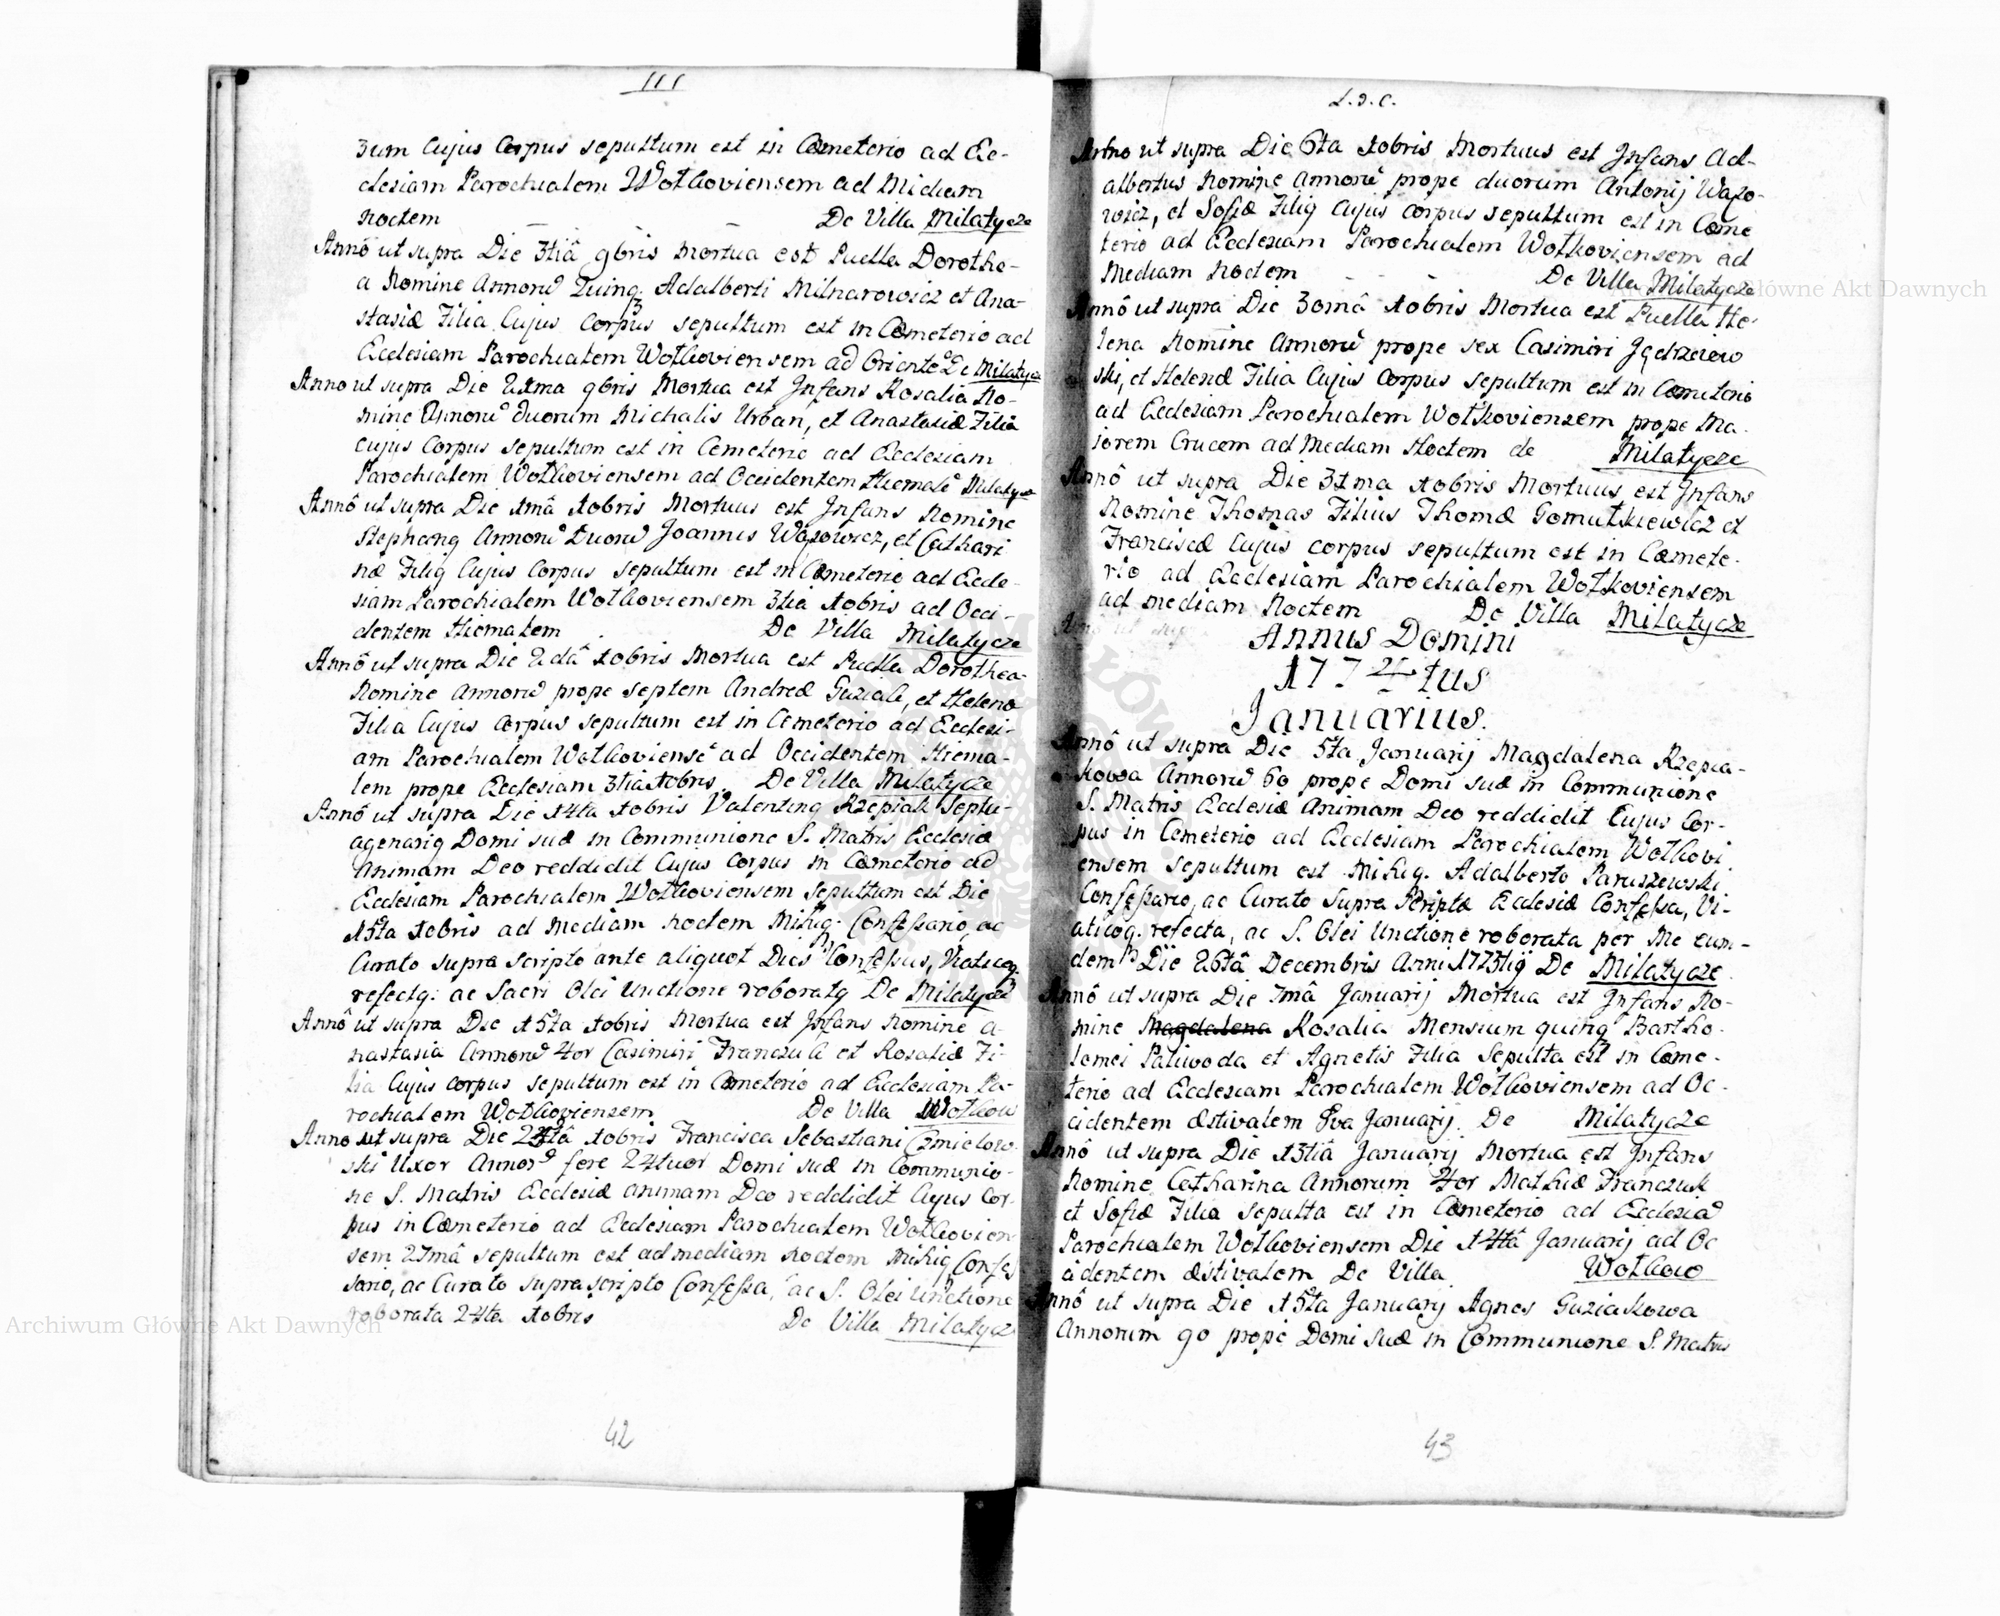 111
zum Cujus Corpus sepultum est in Cœmeterio ad Ec-
clesiam Parochialem Wołkoviensem ad Mediam
Noctem De Villa Milatycze
Annô ut supra Die 3tiâ 9bris Mortua est Puella Dorothe-
a Nomine Annorũ Quinq; Adalberti Milnarowicz et Ana-
stasiæ Filia Cujus Corpus sepultum est in Cœmeterio ad
Ecclesiam Parochialem Wołkoviensem ad Orientẽ De Milatycze
Anno ut supra Die 9bris Mortua est Infans Rosalia No-
mine Annorũ duorum Michalis Urban, et Anastasiæ Filia
cujus Corpus sepultum est in Cemeterio ad Ecclesiam
Parochialem Wołkoviensem ad Occidentem Hiemalẽ Milatycze
Annô ut supra Die 1mâ Xbris Mortuus est Infans Nomine
Stephang Annorũ Duorũ Joannis Wąsowicz, et Cathari
næ Filig Cujus Corpus sepultum est in Cœmeterio ad Eccle-
siam Parochialem Wołkoviensem 3tia Xbris ad Occi-
dentem Hiemalem De Villa Milatycze
Annô ut supra Die 2dâ Xbris Mortua est Puella Dorothea
Nomine Annorũ prope septem Andreæ Guziak, et Helenæ
Filia Cujus Corpus sepultum est in Cemeterio ad Ecclesi-
am Parochialem Wołkoviensẽ ad Occidentem Hiema-
lem prope Ecclesiam 3tia Xbris De Villa Milatycze
Annô ut supra Die 14ta Xbris Valenting Rzepiak Septu-
agenarig Domi suæ in Communione S. Matris Ecclesiæ
Animam Deo reddidit Cujus Corpus in Cœmeterio ad
Ecclesiam Parochialem Wołkoviensem Sepultum est Die
15ta Xbris ad Mediam Noctem Mihig Confessario, ac
Curato supra scripto ante aliquot Dies Confessus, Viaticoq;
refectg: ac Sacri Olei Unctione roboratg De Milatycze
Annô ut supra Die 15ta Xbris Mortua est Infans Nomine A-
nastasia Annorũ 4or Casimiri Franczuk et Rosaliæ Fi-
lia Cujus Corpus sepultum est in Cœmeterio ad Ecclesiam Pa-
rochialem Wołkoviensem De Villa Wołkow
Anno ut supra Die Xbris Francisca Sebastiani Czmielow-
ski Uxor Annorũ fere 24tuor Domi suæ in Communio-
ne S. Matris Ecclesiæ Animam Deo reddidit Cujus Cor-
pus in Cœmeterio ad Ecclesiam Parochialem Wołkovien
sem 27mâ sepultum est ad mediam Noctem Mihig Confes
sario, ac Curato suprascripto Confessa, ac S. Olei Unctione
roborata 24ta Xbris De Villa Milatycz
42
Anno ut supra Die 6ta Xbris Mortuus est Infans Ad-
albertus Nomine Annorũ prope duorum Antonij Wąso-
wicz, et Sofiæ Filig Cujus Corpus sepultum est in Cœme
terio ad Ecclesiam Parochialem Wołkoviensem ad
Mediam Noctem De Villa Milatycze
Annô ut supra Die 30mâ Xbris Mortua est Puella He-
lena Nomine Annorũ prope sex Casimiri Jędrzeiew
ski, et Helenæ Filia Cujus Corpus sepultum est in Cemeterio
ad Ecclesiam Parochialem Wołkoviensem prope Ma-
iorem Crucem ad Mediam Noctem de Milatycze
Annô ut supra Die 31ma Xbris Mortuus est Infans
Nomine Thomas Filius Thomæ Gomułkiewicz et
Franciscæ Cujus corpus sepultum est in Cœmete-
rio ad Ecclesiam Parochialem Wołkoviensem
ad mediam Noctem De Villa Milatycze
Annus Domini
1774tus
Januarius.
Annô ut supra Die 5ta Januarij Magdalena Rzepia-
kowa Annorũ 60 prope Domi suæ in Communione
S. Matris Ecclesiæ Animam Deo reddidit Cujus Cor-
pus in Cemeterio ad Ecclesiam Parochialem Wołkovi
ensem Sepultum est Mihig. Adalberto Paruszewski
Confessario, ac Curato Supra Scriptæ Ecclesiæ Confessa, Vi-
aticoq; refecta, ac S. Olei Unctione roborata per Me eun-
dem Die 26tâ Decembris Anni 1773tig De Milatycze
Annô ut supra Die 7mâ Januarij Mortua est Infans No-
mine Magdalena Rosalia Mensium quinq; Bartho-
lomei Paliwoda et Agnetis Filia Sepulta est in Cœme-
terio ad Ecclesiam Parochialem Wołkoviensem ad Oc-
cidentem Æstivalem 8va Januarij. De Milatycze
Annô ut supra Die 13tiâ Januarij Mortua est Infans
Nomine Catharina Annorum 4or Mathiæ Franczuk
et Sofiæ Filia Sepulta est in Cœmeterio ad Ecclesiã
Parochialem Wołkoviensem Die 14tâ Januarij ad Oc
cidentem Æstivalem De Villa Wołkow
Annô ut supra Die 15ta Januarij Agnes Guziakowa
Annorum 90 prope Domi suæ in Communione S. Matris
43
Archiwum Główne Akt Dawnych
Główne Akt Dawnych